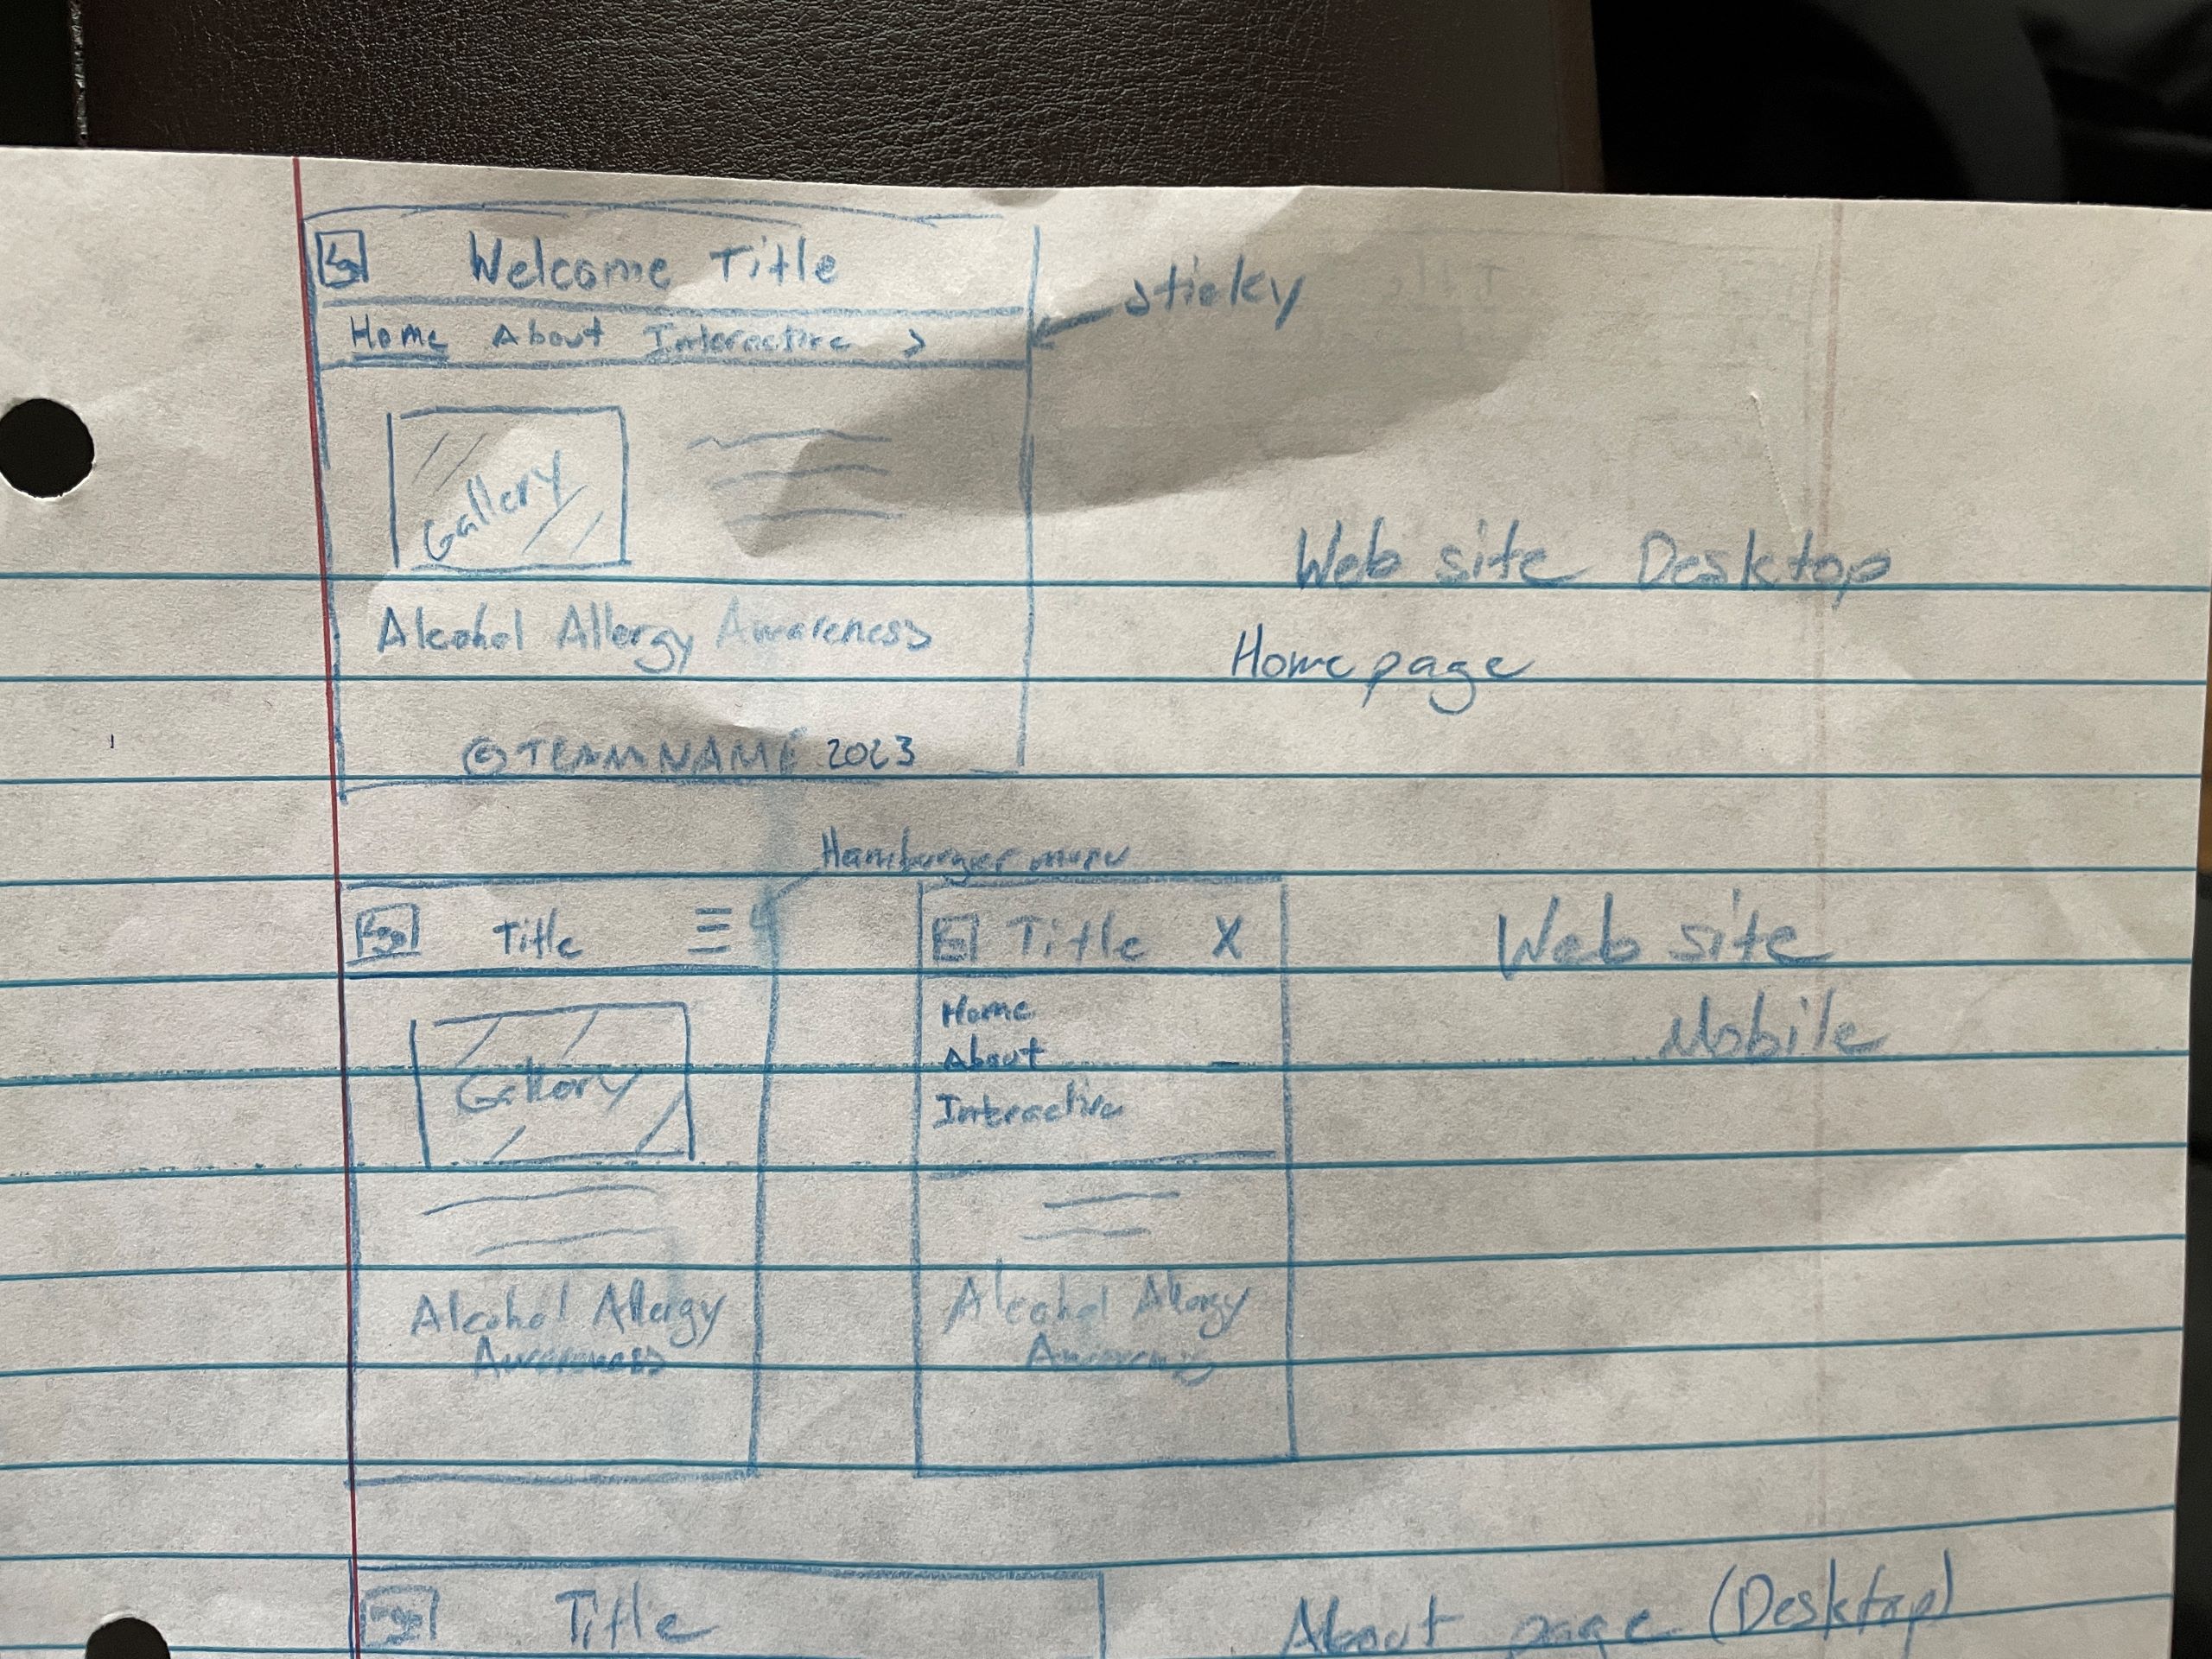 Welcome Title
sticky
Home About Interactive >
Gallery
Web site Desktop
Alcohol Allergy Awareness
Homepage
© TEAM NAME 2023
Hamburger menu
Logo Title
Title X
Web site
Mobile
Home
About
Interactive
Gallery
Alcohol Allergy
Awareness
Alcohol Allergy
Awareness
Logo Title
About page (Desktop)